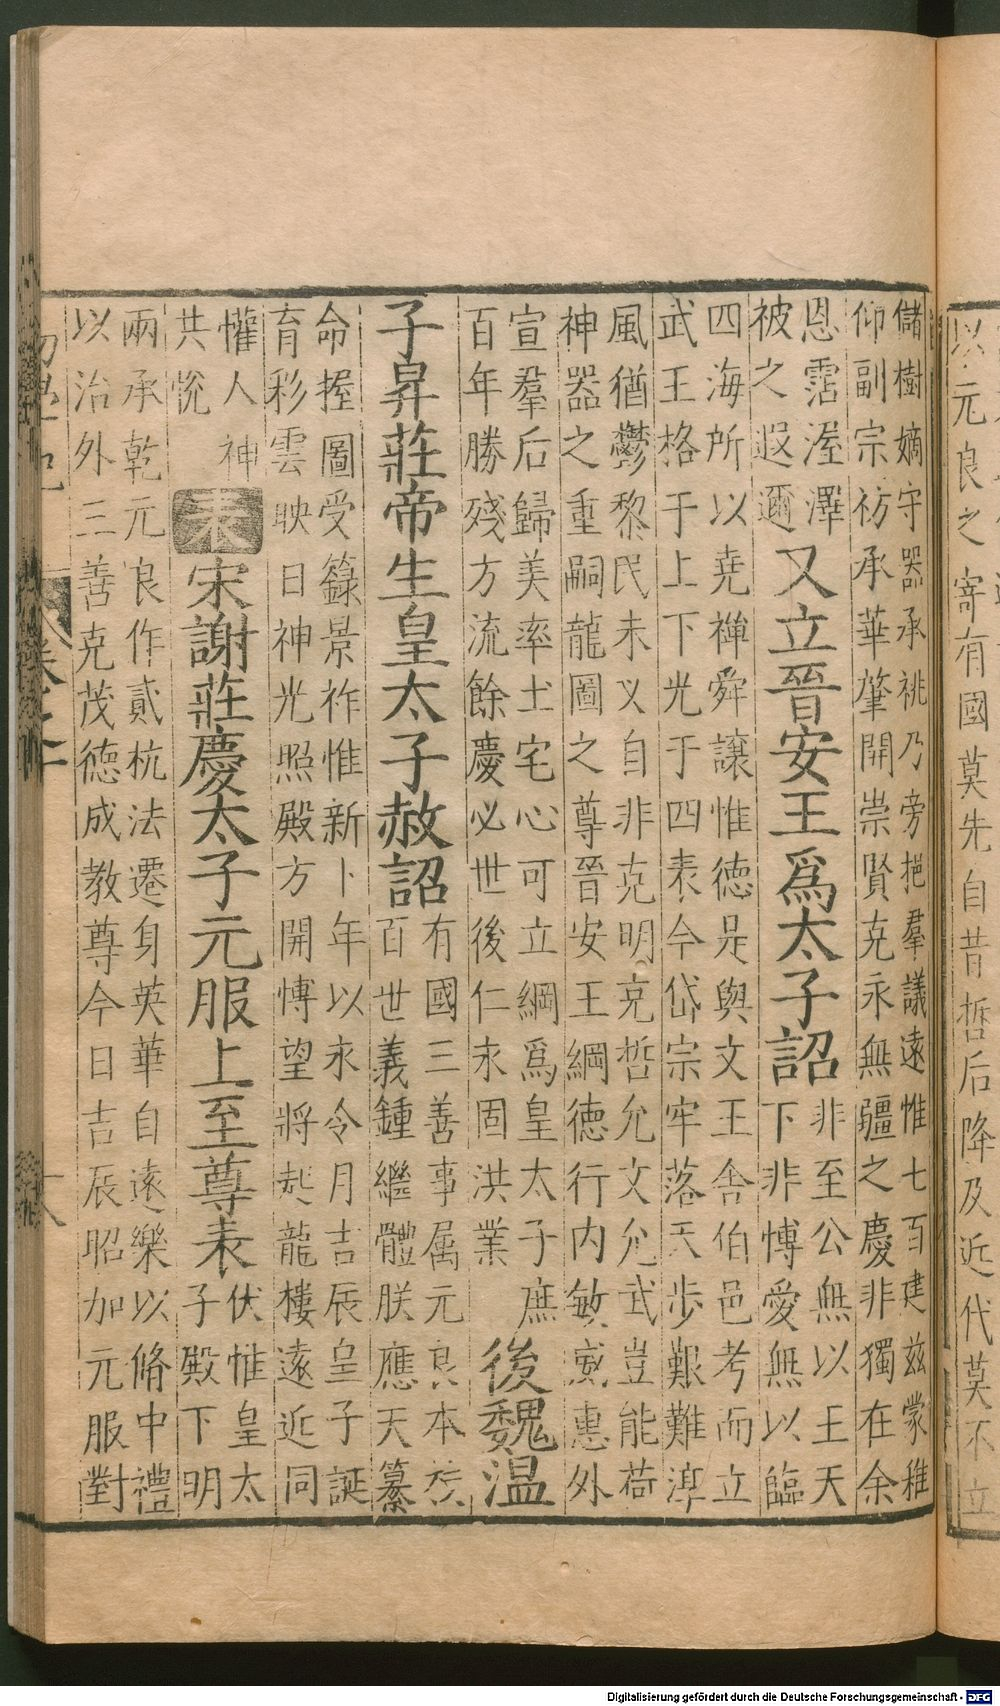 以元良之寄有國莫先自昔哲后降及近代莫不立
儲樹嫡守器承祧乃旁挹羣議遠惟七百建兹蒙稚
仰副宗祊承華肇開崇賢克永無疆之慶非獨在余
恩霑渥澤
被之遐邇
又立晉安王爲太子詔
非至公無以王天
下非愽愛無以臨
四海所以堯禅舜讓惟德是與文王舍伯邑考而立
武王格于上下光于四表今岱宗牢落天步艱難淳
風猶鬱黎民未乂自非克明克哲允文允武豈能荷
神器之重嗣龍圖之尊晉安王綱德行内敏威惠外
宣羣后歸美率土宅心可立綱爲皇太子庶
百年勝殘方流餘慶必世後仁永固洪業
後魏温
子昇莊帝生皇太子赦詔
有國三善事属元良本枝
百世義鍾繼體朕應天纂
命握圖受籙景祚惟新卜年以永令月吉辰皇子誕
育彩雲映日神光照殿方開愽望將起龍樓遠近同
懽人神
共悅
表
宋謝莊慶太子元服上至尊表
伏惟皇太
子殿下明
兩承乾元良作貳杭法遷身英華自遠樂以脩中禮
以治外三善克茂德成教尊今日吉辰昭加元服對